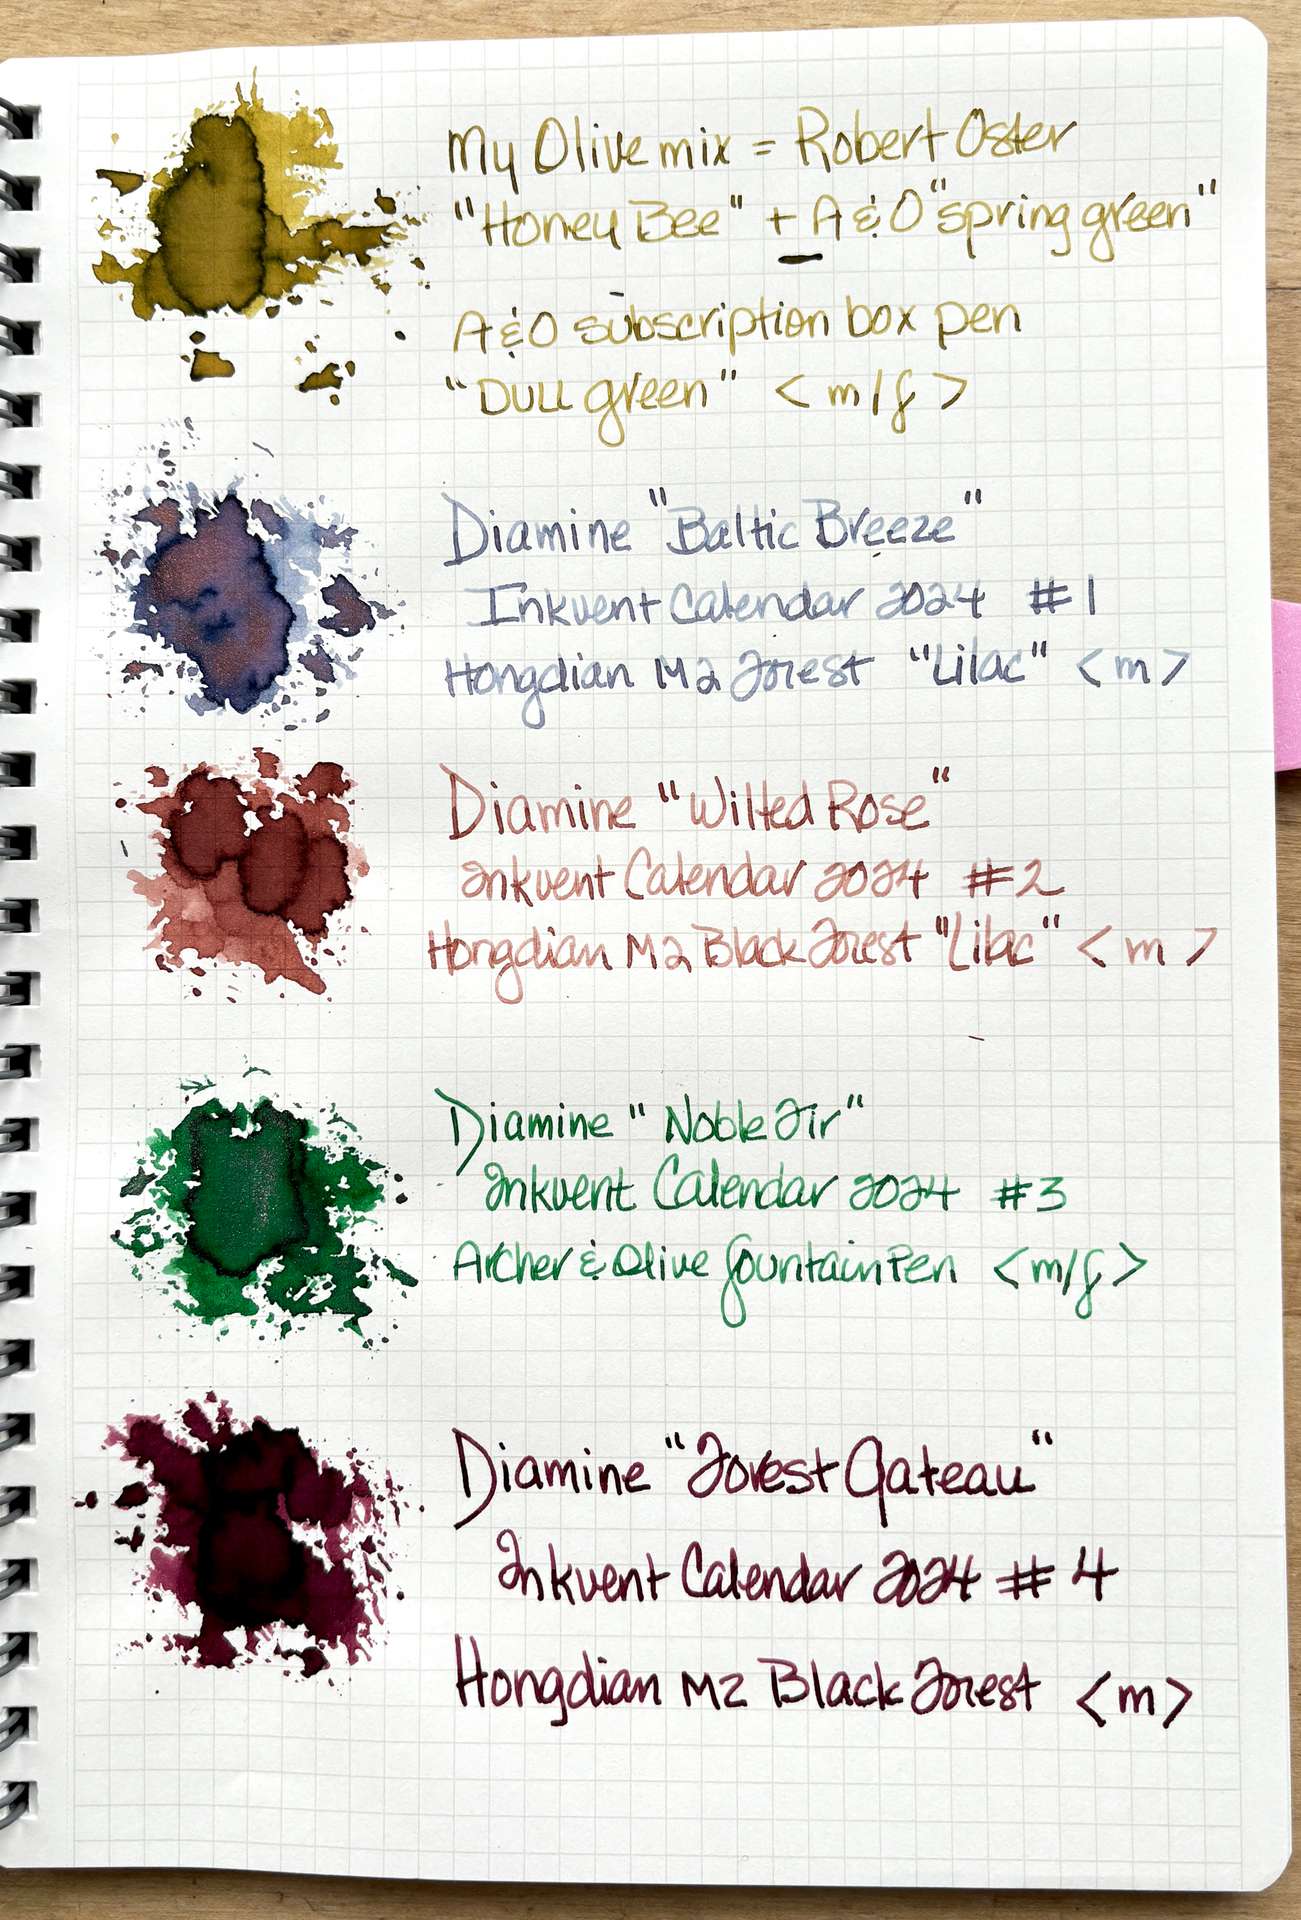 My Olive mix = Robert Oster
"Honey Bee" + A & O "spring green"
A & O subscription box pen
"Dull green" < m/f >
Diamine "Baltic Breeze"
Inkvent Calendar 2024 #1
Hongdian M2 Forest "Lilac" < m >
Diamine "Wilted Rose"
Inkvent Calendar 2024 #2
Hongdian M2 Black Forest "Lilac" < m >
Diamine "Noble Fir"
Inkvent Calendar 2024 #3
Archer & Olive fountain Pen < m/f >
Diamine "Forest Gateau"
Inkvent Calendar 2024 #4
Hongdian M2 Black Forest < m >